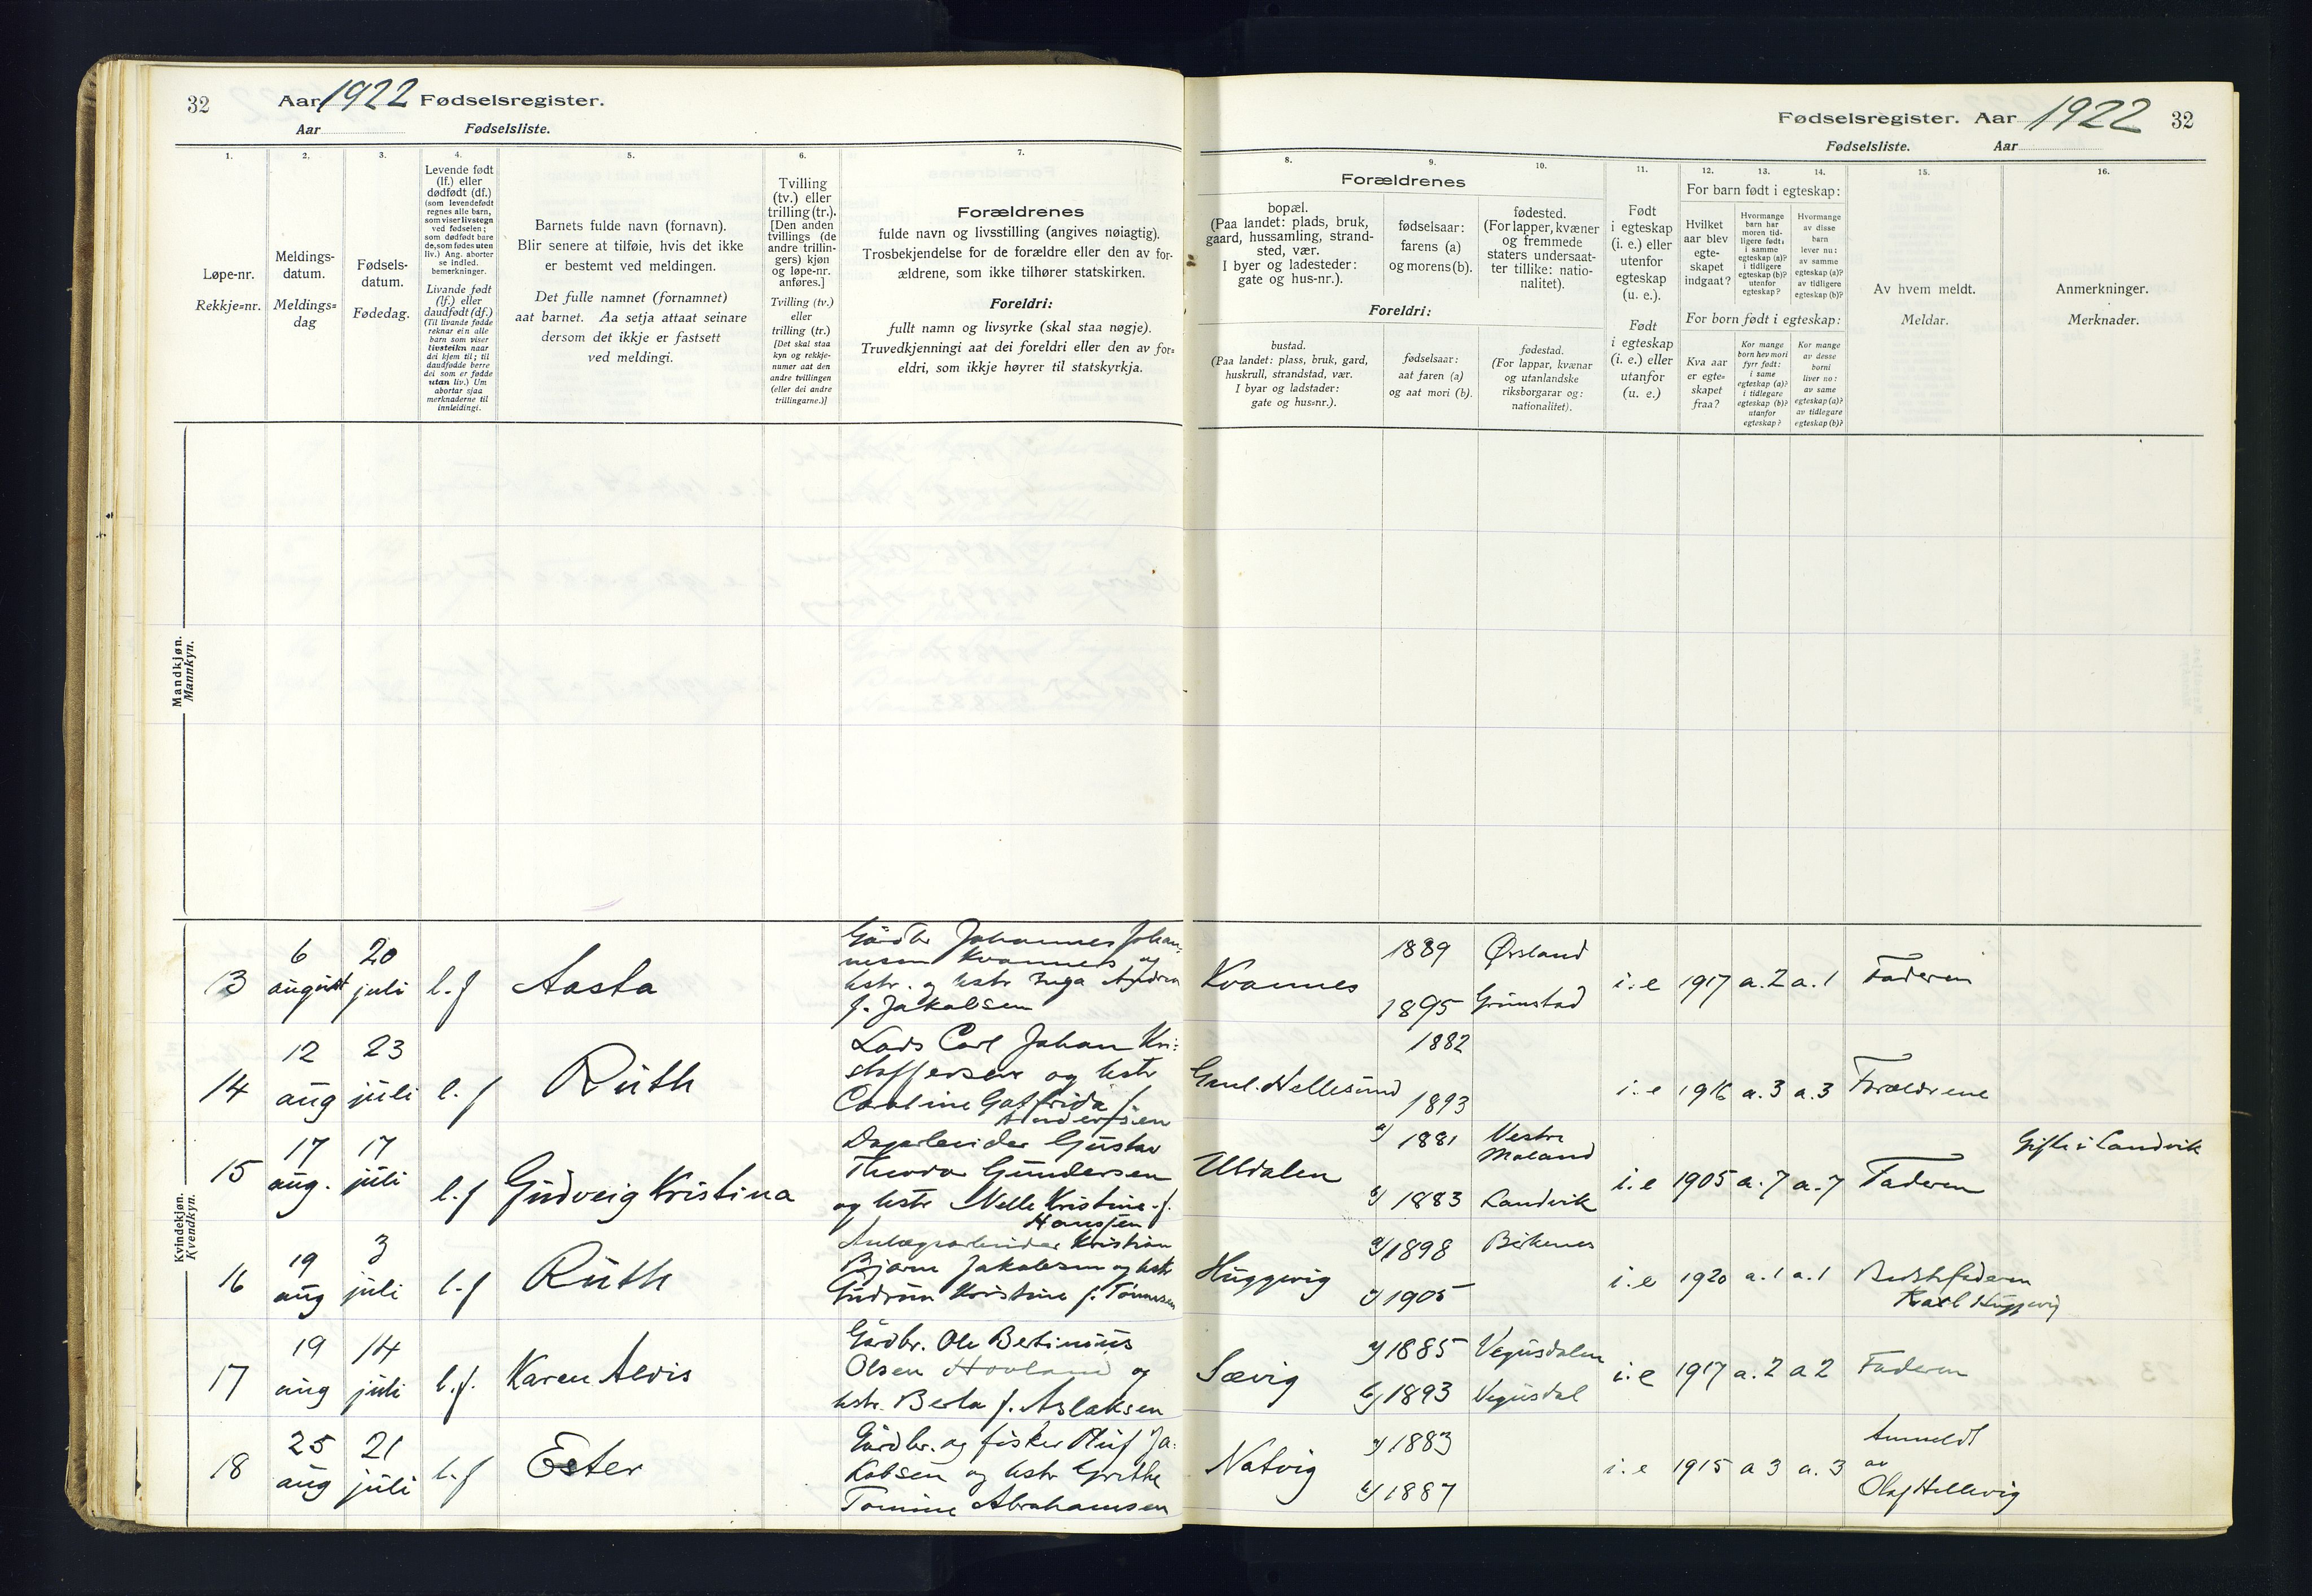 32
Aar 1922 Fødselsregister.
Aar
Fødselsliste.
1.
Løpe-nr.
Rekkje=nr.
2.
Meldings-
datum.
Meldings=
dag
3.
Fødsels-
datum.
Fødedag.
4.
Levende født
(lf.) eller
dødfødt (df.)
(som levendefødt
regnes alle barn,
som viser livstegn
ved fødselen;
som dødfødt bare
de, som fødes uten
liv.) Ang. aborter
se indled.
bemerkninger.
Livande født
(lf.) eller
daudfødt (df.)
(Til livande fødde
reknar ein alle
barn som viser
livsteikn naar
dei kjem til; til
daudfødde berre
dei som er fødde
utan liv.) Um
abortar sjaa
merknaderne til
innleidingi.
5.
Barnets fulde navn (fornavn).
Blir senere at tilføie, hvis det ikke
er bestemt ved meldingen.
Det fulle namnet (fornamnet)
aat barnet. Aa setja attaat seinare
dersom det ikkje er fastsett
ved meldingi.
6.
Tvilling
(tv.) eller
trilling (tr.).
[Den anden
tvillings (de
andre trillin-
gers) kjøn
og løpe-nr.
anføres.]
Tvilling (tv.)
eller
trilling (tr.)
[Det skal staa
kyn og rekkje-
numer aat den
andre tvillingen
(eller dei andre
trillingarne.)]
7.
Forældrenes
fulde navn og livsstilling (angives nøiagtig).
Trosbekjendelse for de forældre eller den av for-
ældrene, som ikke tilhører statskirken.
Foreldri:
fullt namn og livsyrke (skal staa nøgje).
Truvedkjenningi aat dei foreldri eller den av for=
eldri, som ikkje høyrer til statskyrkja.
Fødselsregister. Aar 1922 32
Fødselsliste. Aar
Forældrenes
8.
bopæl.
(Paa landet: plads, bruk,
gaard, hussamling, strand-
sted, vær.
I byer og ladesteder:
gate og hus-nr.).
9.
fødselsaar:
farens (a)
og morens (b).
10.
fødested.
(For lapper, kvæner
og fremmede
staters undersaat-
ter tillike: natio-
nalitet).
Foreldri:
bustad.
(Paa landet: plass, bruk, gard,
huskrull, strandstad, vær.
I byar og ladstader:
gate og hus=nr.).
fødselsaar:
aat faren (a)
og aat mori (b).
fødestad.
(For lappar, kvænar
og utanlandske
riksborgarar og:
nationalitet).
11.
Født
i egteskap
(i. e.) eller
utenfor
egteskap
(u. e.).
Født
i egteskap
(i. e.) eller
utanfor
(u. e.)
12. 13. 14.
For barn født i egteskap:
Hvilket
aar blev
egte-
skapet
indgaat?
Hvormange
barn har
moren tid-
ligere født:
i samme
egteskap (a)?
i tidligere
egteskap (b)?
utenfor
egteskap?
Hvormange
av disse
barn
lever nu:
av samme
egteskap (a)?
av tidligere
egteskap (b)?
For born født i egteskap:
Kva aar
er egte=
skapet
fraa?
Kor mange
born hev mori
fyrr født:
i same
egteskap (a)?
i tidlegare
egteskap (b)?
utanfor
egteskap?
Kor mange
av desse
borni
liver no:
av same
egteskap (a)?
av tidlegare
egteskap (b)?
15.
Av hvem meldt.
Meldar.
16.
Anmerkninger.
Merknader.
Mandkjøn.
Mannkyn.
Kvindekjøn.
Kvendkyn.
13 6 august 20 juli l.f Aasta
Gårdbr Johannes Johan-
nesen Kvannes og
hstr. og hstr Inga Andrea
f. Jakobsen
Kvannes 1889 Øvsland
1895 Grimstad
i.e 1917 a.2 a.1 Faderen
14 12 aug 23 juli l.f Ruth
Lods Carl Johan Kri-
stoffersen og hstr
Caroline Gotfrida f.
Andersen
Gml. Hellesund 1882
1893
i.e 1916 a.3 a.3 Forældrene
15 17 aug. 17 juli l.f Gudveig Kristina
Dagarbeider Gustav
Theodor Gundersen
og hstr Nelle Kristine f.
Hanssen
Uldalen a/ 1881 Vestre Moland
b/ 1883 Landvik
i.e 1905 a.7 a.7 Faderen
Gifte i Landvik
16 19 aug 3 juli l.f Ruth
Anlægsarbeider Kristian
Bjarne Jakobsen og hstr
Gudrun Kristine f. Tønnesen
Huggevig a/ 1898 Birkenes
b/ 1905
i.e 1920 a.1 a.1 Bedstefaderen
Karl Huggevig
17 19 aug 14 juli l.f. Karen Alvis
Gårdbr. Ole Bertinius
Olsen Hovland og
hstr. Berta f. Aslaksen
Sævig a/ 1885 Vegusdalen
b/ 1893 Vegusdal
i.e 1917 a.2 a 2 Faderen
18 25 aug 21 juli l.f Ester
Gårdbr. og fisker Oluf Ja-
kobsen og hstr Grethe
Tomine Abrahamsen
Natvig a/ 1883
b/ 1887
i.e 1915 a 3 a.3 Anmeldt
av
Olaf Hellevig